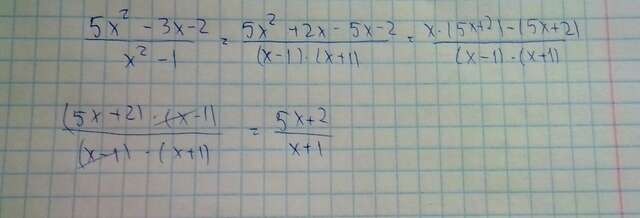 (5x² - 3x - 2)/(x² - 1) = (5x² + 2x - 5x - 2)/((x-1)·(x+1)) = (x·(5x+2) - (5x+2))/((x-1)·(x+1))
((5x+2)·(x-1))/((x-1)·(x+1)) = (5x+2)/(x+1)